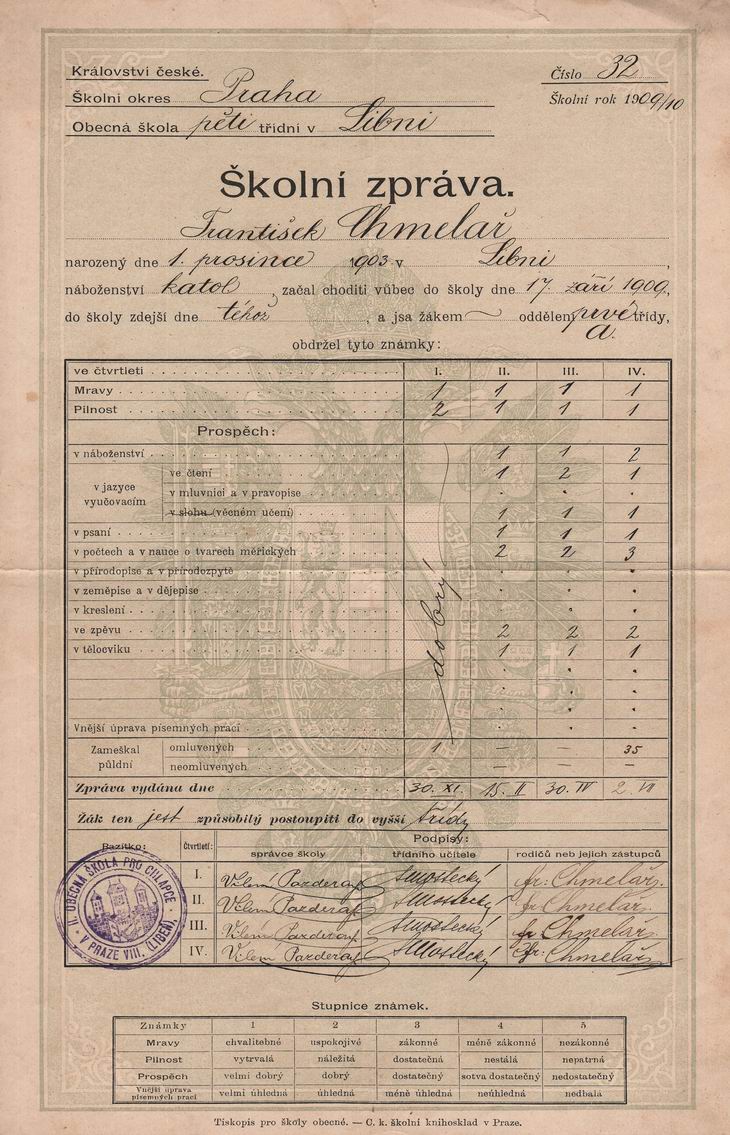 Království české.
Číslo 32
Školní okres Praha
Školní rok 1909/10
Obecná škola pěti třídní v Libni
Školní zpráva.
František Chmelař
narozený dne 1. prosince 1903 v Libni,
náboženství katol, začal choditi vůbec do školy dne 17. září 1909,
do školy zdejší dne téhož, a jsa žákem ~ oddělení prvé třídy,
a.
obdržel tyto známky:
ve čtvrtletí I. II. III. IV.
Mravy 1 1 1 1
Pilnost 2 1 1 1
Prospěch:
v náboženství 1 1 2
v jazyce vyučovacím
ve čtení 1 2 1
v mluvnici a v pravopise . . .
v slohu (věcném učení) 1 1 1
v psaní 1 1 1
v počtech a v nauce o tvarech měřických 2 2 3
v přírodopise a v přírodozpytě . . .
v zeměpise a v dějepise . . .
v kreslení . .
ve zpěvu 2 2 2
v tělocviku 1 1 1
dobrý
Vnější úprava písemných prací . .
Zameškal půldní
omluvených 1 — — 35
neomluvených — — —
Zpráva vydána dne 30. XI. 15. II 30. IV 2. VII
Žák ten jest způsobilý postoupiti do vyšší třídy
Razítko: Čtvrtletí: Podpisy:
správce školy třídního učitele rodičů neb jejich zástupců
I. Vilém AMostecký fr: Chmelař.
II. Vilém AMostecký fr: Chmelař.
III. Vilém AMostecký fr: Chmelař
IV. Vilém AMostecký fr: Chmelař
II. OBECNÁ ŠKOLA PRO CHLAPCE
V PRAZE VIII. (LIBEŇ)
Stupnice známek.
Známky 1 2 3 4 5
Mravy chvalitebné uspokojivé zákonné méně zákonné nezákonné
Pilnost vytrvalá náležitá dostatečná nestálá nepatrná
Prospěch velmi dobrý dobrý dostatečný sotva dostatečný nedostatečný
Vnější úprava písemných prací velmi úhledná úhledná méně úhledná neúhledná nedbalá
Tiskopis pro školy obecné. — C. k. školní knihosklad v Praze.